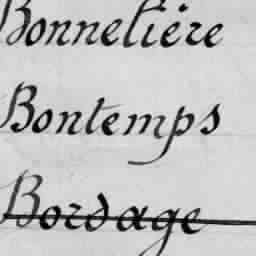 Bonnelière
Bontemps
Bordage